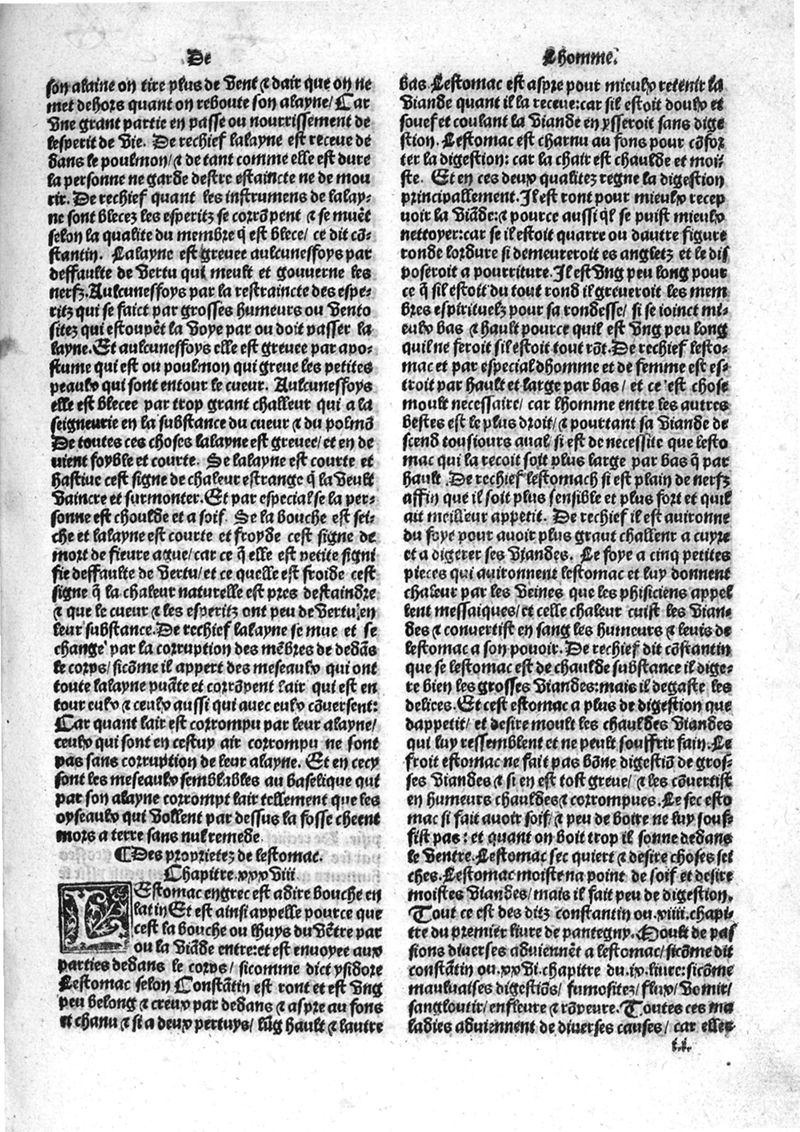 De
Lhomme.
son alaine on tire plus de vent & dair que on ne
met dehors quant on reboute son alayne/ Car
vne grant partie en passe ou nourrissement de
lesperit de vie. De rechief lalayne est receue de
dans le poulmon/ & de tant comme elle est dure
la personne ne garde destre estaincte ne de mou
rir. De rechief quant les instrumens de lalay-
ne sont blecez les esperitz se corrõpent & se muẽt
selon la qualite du membre q̃ est blece/ ce dit cõ-
stantin. Lalayne est greuee aulcuneffoys par
deffaulte de vertu qui meult et gouuerne les
nerfz. Aulcuneffoys par la restraincte des espe-
ritz qui se faict par grosses humeurs ou vento
sitez qui estoupẽt la voye par ou doit passer la
layne. Et aulcuneffoys elle est greuee par apo-
stume qui est ou poulmon qui greue les petites
peaulx qui sont entour le cueur. Aulcuneffoys
elle est blecee par trop grant challeur qui a la
seigneurie en la substance du cueur & du polmõ
De toutes ces choses lalayne est greuee/ et en de
uient foyble et courte. Se lalayne est courte et
hastiue cest signe de chaleur estrange q̃ la veult
vaincre et surmonter. Et par especial se la per-
sonne est choulde et a soif. Se la bouche est sei-
che et lalayne est courte et froyde cest signe de
mort de fieure ague/ car ce q̃ elle est petite signi
fie deffaulte de vertu/ et ce quelle est froide cest
signe q̃ la chaleur naturelle est pres destaindre
& que le cueur & les esperitz ont peu de vertu en
leur substance. De rechief lalayne se mue et se
change par la corruption des mẽbres de dedãs
le corps/ sicõme il appert des meseaulx qui ont
toute lalayne puãte et corrõpent lair qui est en
tour eulx & ceulx aussi qui auec eulx cõuersent:
Car quant lair est corrompu par leur alayne/
ceulx qui sont en cestuy air corrompu ne sont
pas sans corruption de leur alayne. Et en cecy
sont les meseaulx semblables au baselique qui
par son alayne corrompt lair tellement que les
oyseaulx qui vollent par dessus la fosse cheent
mors a terre sans nul remede.
¶ Des proprietez de lestomac.
Chapitre .xxxviii
LEstomac en grec est a dire bouche en
latin Et est ainsi appelle pource que
cest la bouche ou lhuys du vẽtre par
ou la viãde entre: et est enuoyee aux
parties dedans le corps/ sicomme dict ysidore
Lestomac selon Constãtin est ront et est vng
peu belong & creux par dedans & aspre au fons
et chanu & si a deux pertuys/ lũg hault & lautre
bas. Lestomac est aspre pour mieulx retenir la
viande quant il la receue: car sil estoit doulx et
souef et coulant la viande en ysseroit sans dige
stion. Lestomac est charnu au fons pour cõfor
ter la digestion: car la chair est chaulde et moi-
ste. Et en ces deux qualitez regne la digestion
principallement. Il est ront pour mieulx recep
uoir la viãde: & pource aussi q̃l se puist mieulx
nettoyer: car se il estoit quarre ou dautre figure
ronde lordure si demeureroit es angletz et le dis
poseroit a pourriture. Il est vng peu long pour
ce q̃ sil estoit du tout rond il greueroit les mem
bres espirituelz pour sa rondesse/ si se ioinct mi-
eulx bas & hault pource quil est vng peu long
quil ne feroit sil estoit tout rõt. De rechief lesto-
mac et par especial dhomme et de femme est es-
troit par hault et large par bas/ et ce est chose
moult necessaire/ car lhomme entre les autres
bestes est le plus droit/ & pourtant sa viande de
scend tousiours aual/ si est de necessite que lesto
mac qui la recoit soit plus large par bas q̃ par
hault. De rechief lestomach si est plain de nerfz
affin que il soit plus sensible et plus fort et quil
ait meilleur appetit. De rechief il est auironne
du foye pour auoir plus grant challeur a cuyre
et a digerer ses viandes. Le foye a cinq petites
pieces qui auironnent lestomac et luy donnent
chaleur par les veines que les phisiciens appel
lent messaiques/ et celle chaleur cuist les vian-
des & conuertist en sang les humeurs & leuis de
lestomac a son pouoir. De rechief dit cõstantin
que se lestomac est de chaulde substance il dige-
re bien les grosses viandes: mais il degaste les
delices. Et cest estomac a plus de digestion que
dappetit/ et desire moult les chauldes viandes
qui luy ressemblent et ne peult souffrir fain. Le
froit estomac ne fait pas bõne digestiõ de gros-
ses viandes & si en est tost greue/ & les cõuertist
en humeurs chauldes & corrompues. Le sec esto
mac si fait auoir soif/ & peu de boire ne luy souf-
fist pas: et quant on boit trop il sonne dedans
le ventre. Lestomac sec quiert & desire choses sei
ches. Lestomac moiste na point de soif et desire
moistes viandes/ mais il fait peu de digestion.
Tout ce est des ditz constantin ou .xiii. chapi-
tre du premier liure de pantegny. Moult de pas
sions diuerses aduiennẽt a lestomac/ sicõme dit
constãtin ou .xxvi. chapitre du .ix. liure: sicõme
mauuaises digestiõs/ fumositez/ flux/ vomir/
sangloutir/ enfleure & rõpeure. Toutes ces ma
ladies aduiennent de diuerses causes/ car elles